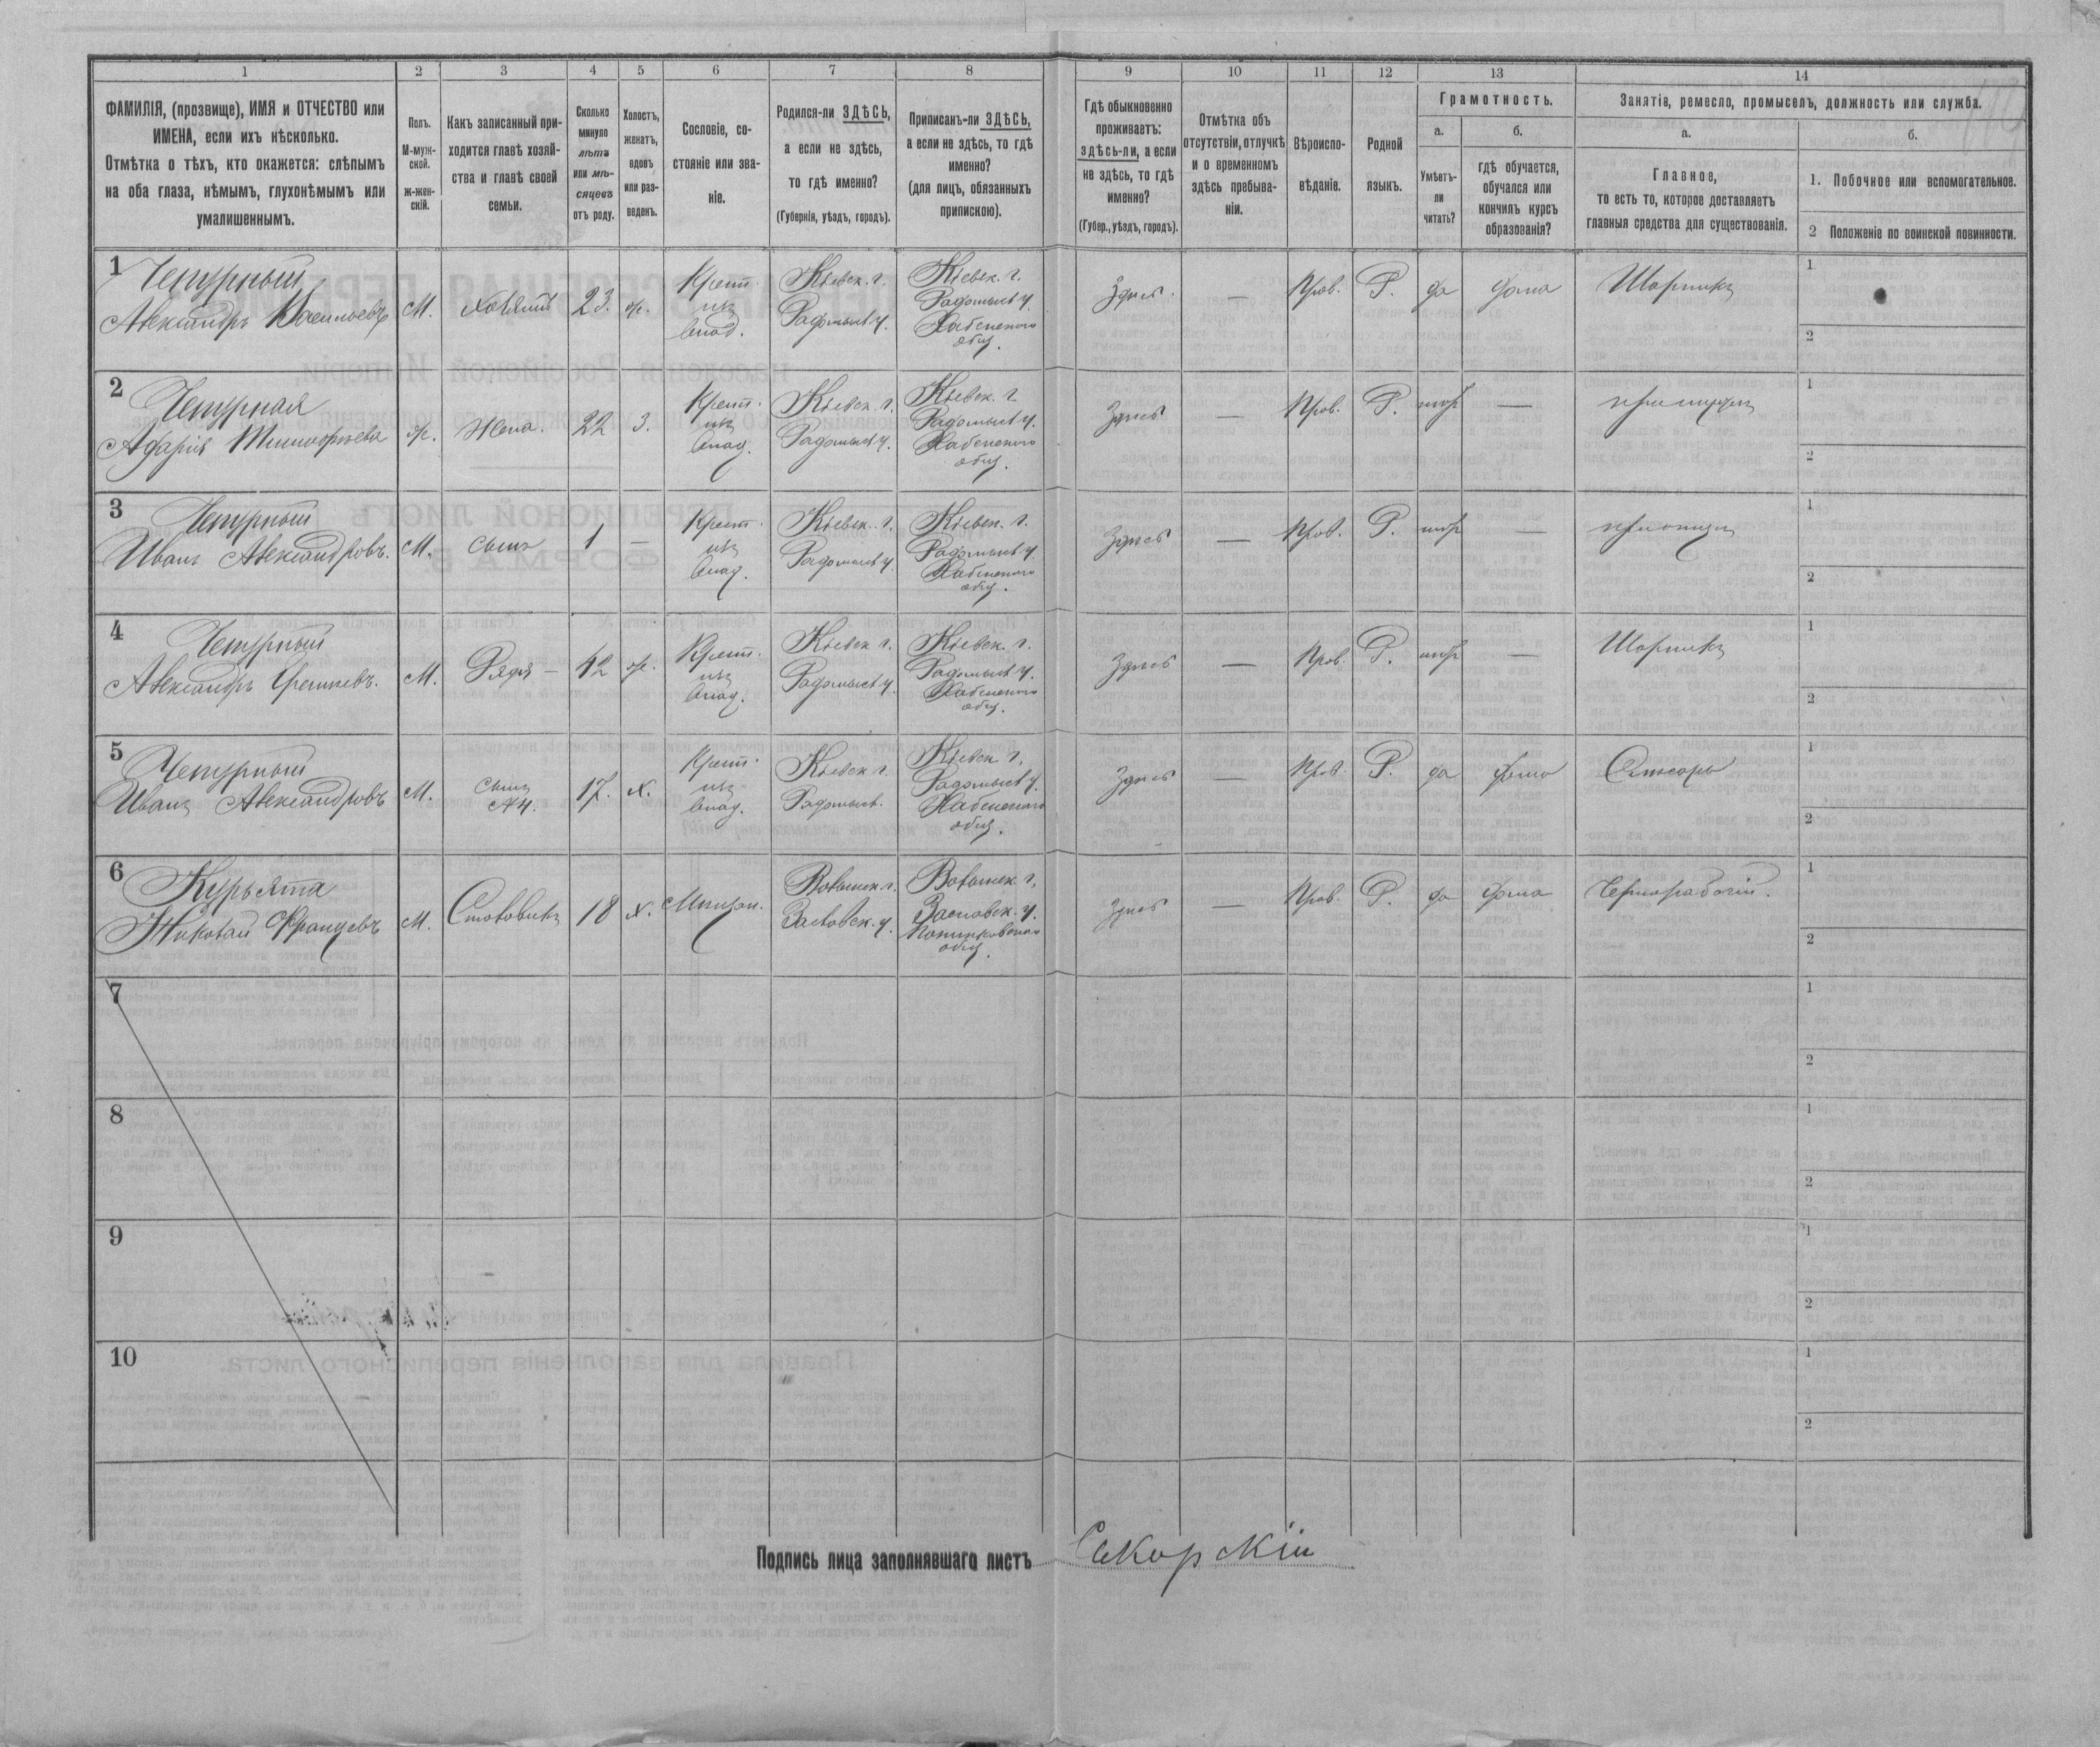 1 2 3 4 5 6 7 8 9 10 11 12 13 14
ФАМИЛІЯ, (прозвище), ИМЯ и ОТЧЕСТВО или
ИМЕНА, если ихъ нѣсколько.
Отмѣтка о тѣхъ, кто окажется: слѣпымъ
на оба глаза, нѣмымъ, глухонѣмымъ или
умалишеннымъ.
Полъ.
М-муж-
ской.
ж-жен-
скій.
Какъ записанный при-
ходится главѣ хозяй-
ства и главѣ своей
семьи.
Сколько
минуло
лѣтъ
или мѣ-
сяцевъ
отъ роду.
Холостъ,
женатъ,
вдовъ
или раз-
веденъ.
Сословіе, со-
стояніе или зва-
ніе.
Родился-ли ЗДѢСЬ,
а если не здѣсь,
то гдѣ именно?
(Губернія, уѣздъ, городъ).
Приписанъ-ли ЗДѢСЬ,
а если не здѣсь, то гдѣ
именно?
(для лицъ, обязанныхъ
припискою).
Гдѣ обыкновенно
проживаетъ:
здѣсь-ли, а если
не здѣсь, то гдѣ
именно?
(Губер., уѣздъ, городъ).
Отмѣтка объ
отсутствіи, отлучкѣ
и о временномъ
здѣсь пребыва-
ніи.
Вѣроиспо-
вѣданіе.
Родной
языкъ.
Грамотность.
а.
Умѣетъ-
ли
читать?
б.
гдѣ обучается,
обучался или
кончилъ курсъ
образованія?
Занятіе, ремесло, промыселъ, должность или служба.
а.
Главное,
то есть то, которое доставляетъ
главныя средства для существованія.
б.
1. Побочное или вспомогательное.
2 Положеніе по воинской повинности.
1
Чепурный
Александръ Васильевъ
М. хозяинъ 23. ж.
Крест.
изъ
влад.
Кіевск. г.
Радомысл у.
Кіевск. г.
Радомысл у.
Хабенского
общ.
Здѣсь. — Прав. Р. да дома Шорникъ
1
2
2
Чепурная
Дарія Тимофѣева
ж. Жена. 22 З.
Крест.
изъ
влад.
Кіевск. г.
Радомысл у.
Кіевск. г.
Радомысл у.
Хабенского
общ.
Здѣсь — Прав. Р. —
1
2
3
Чепурный
Иванъ Александровъ.
М. сынъ 1 —
Крест.
изъ
влад.
Кіевск. г.
Радомысл у.
Кіевск. г.
Радомысл у.
Хабенского
общ.
Здѣсь — Прав. Р. —
1
2
4
Чепурный
Александръ
М. Дядя — 42 ж.
Крест.
изъ
влад.
Кіевск г.
Радомысл у.
Кіевск. г.
Радомысл у.
Хабенского
общ.
Здѣсь — Прав. Р. — Шорникъ
1
2
5
Чепурный
Иванъ Александровъ
М. сынъ
№4. 17. х.
Крест.
изъ
влад.
Кіевск г.
Радомысл.
Кіевск г.
Радомысл у.
Хабенского
общ.
Здѣсь — Прав. Р. да дома Слесарь
1
2
6
Курьята
Николай Францевъ
М. Столовникъ 18 х. Мѣщан.
Волынск г.
Заславск. у.
Волынск. г.
Заславск. у.
общ.
Здѣсь — Прав. Р. да дома Чернорабочій.
1
2
7
1
2
8
1
2
9
1
2
10
1
2
Подпись лица заполнявшаго листъ Сикорскій